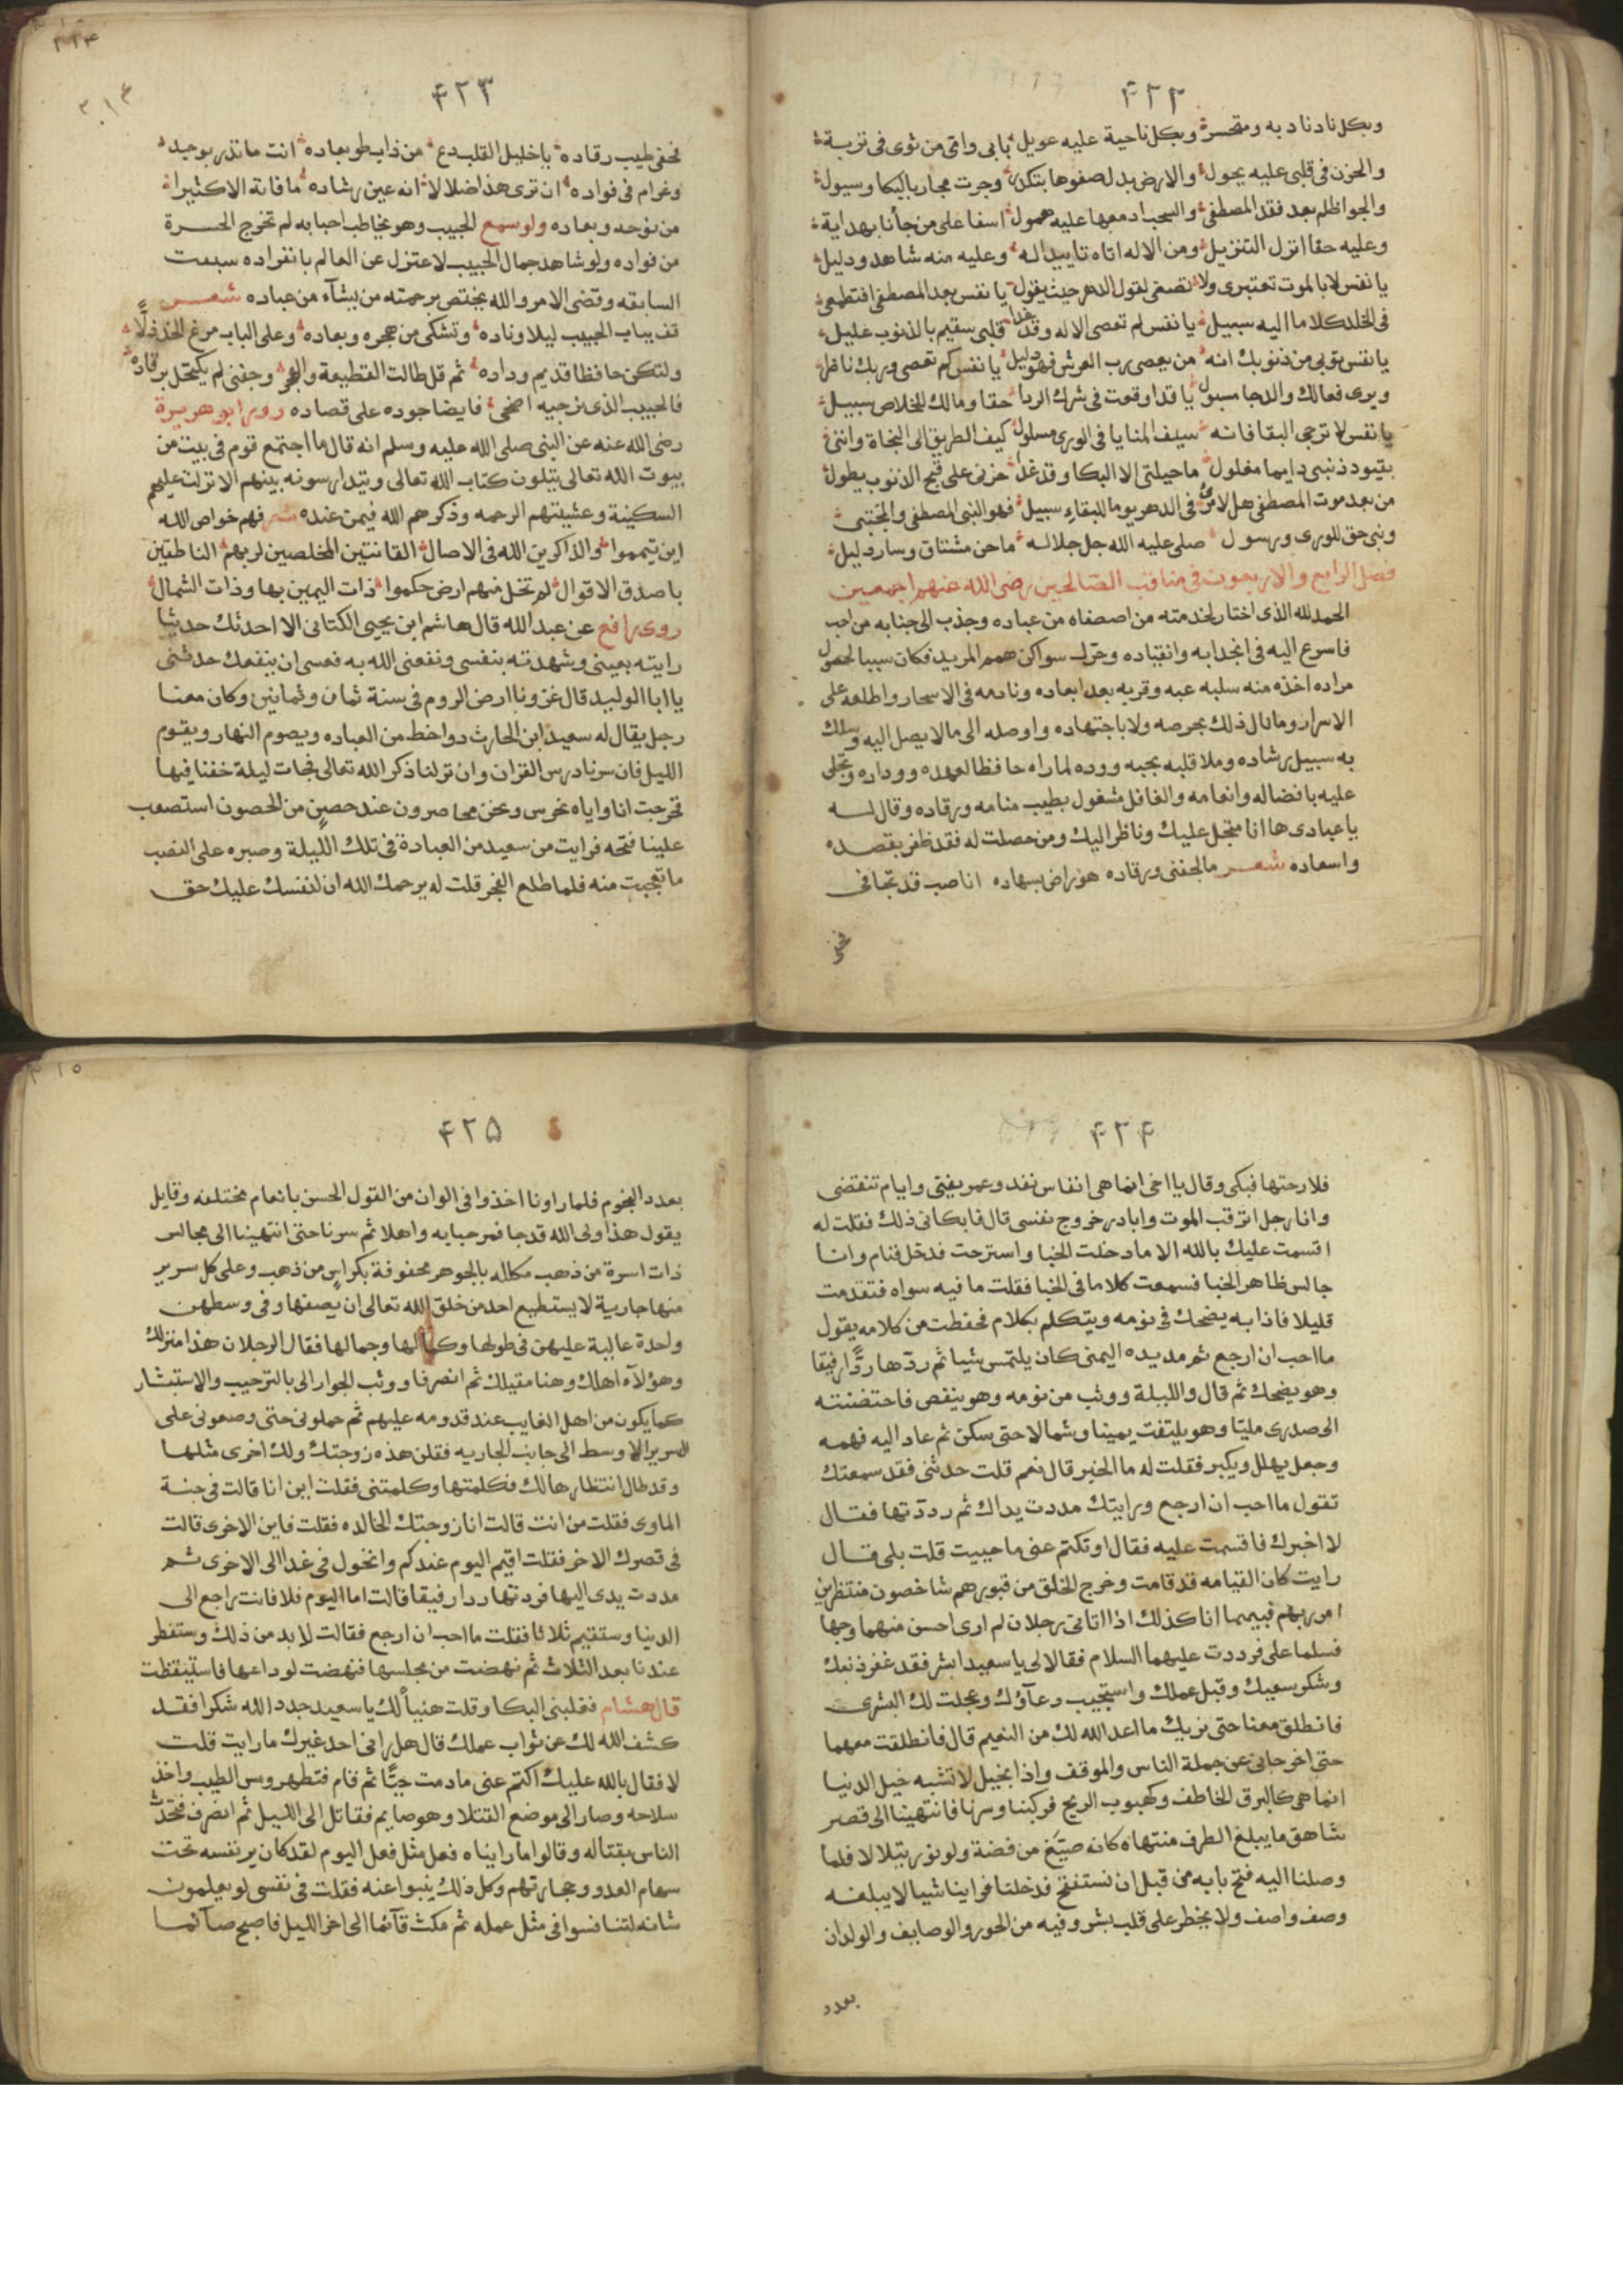 ٤٢٢
وبكل ناد نادبه ومتحسر وبكل ناحية عليه عويل بابي وامي من ثوى في تربة
والحزن في قلبي عليه يحول والارض بدل صفوها بتكدر وجرت مجار بالبكا وسيول
والجو اظلم بعد فقد المصطفى والسحب ادمعها عليه همول اسفا على من جأنا بهداية
وعليه حقا انزل التنزيل ومن الاله اتاه تاييد له وعليه منه شاهد ودليل
يا نفس لا بالموت تعتبرى ولا تصغى لقول الدهر حيث يقول يا نفس بعد المصطفى افتطمعى
في الخلد كلا ما اليه سبيل يا نفس لم تعصى الاله وقد غدا قلبى سقيم بالذنوب عليل
يا نفس توبى من ذنوبك انه من يعصى رب العرش فهو ذليل يا نفس كم تعصى وربك ناظر
ويرى فعالك والدجا مسبول يا قد اوقعت في شرك الربا حقا ومالك للخلاص سبيل
يا نفس لا ترجى البقا فانه سيف المنايا في الورى مسلول كيف الطريق الى النجاة واننى
بقيود ذنبى دايما مغلول ما حيلتى الا البكا وقد غدا حزنى على قبح الذنوب يطول
من بعد موت المصطفى هل لامرئ في الدهر يوما للبقاء سبيل فهو النبى المصطفى والمجتبى
ونبى حق للورى ورسول صلى عليه الله جل جلاله ما حن مشتاق وسار دليل
فصل الرابع والاربعون في مناقب الصالحين رضى الله عنهم اجمعين
الحمد لله الذى اختار لخدمته من اصطفاه من عباده وجذب الى جنابه من احب
فاسرع اليه في انجذابه وانقياده وحرك سواكن همم المريد فكان سببا لحصول
مراده اخذه منه سلبه عبه وقربه بعد ابعاده ونادمه في الاسحار واطلعه على
الاسرار وما نال ذلك بحرصه ولا باجتهاده واوصله الى ما لا يصل اليه وسلك
به سبيل رشاده وملا قلبه بحبه ووده لما راه حافظا لعهده ووداده وتجلى
عليه بافضاله وانعامه والغافل مشغول بطيب منامه ورقاده وقال لـه
يا عبادى ها انا متجل عليك وناظر اليك ومن حصلت له فقد ظفر بقصده
واسعاده شعر ما لجفنى ورقاده هو راض بسهاده انا صب قد تجافى
٤٢٣
جفنى طيب رقاده يا خليل القلب دع من ذاب طو بعاده انت ما تدر بوجد
وغرام في فواده ان ترى هذا ضلالا انه عين رشاده ما فاته الا كثيرا
من نوحه وبعاده ولو سمع الحبيب وهو يخاطب احبابه لم تخرج الحسرة
من فواده ولو شاهد جمال الحبيب لاعتزل عن العالم بانفراده سبقت
السابقه وقضى الامر والله يختص برحمته من يشآء من عباده شعر
قف بباب الحبيب ليلا وناده وتشكى من هجره وبعاده وعلى الباب مرغ الخد ذلًا
ولتكن حافظا قديم وداده ثم قل طالت القطيعة والهجر وجفنى لم يكتحل برقاده
فالحبيب الذى نرجيه اضحى فايضا جوده على قصاده روى ابو هريرة
رضى الله عنه عن النبى صلى الله عليه وسلم انه قال ما اجتمع قوم في بيت من
بيوت الله تعالى يتلون كتاب الله تعالى ويتدارسونه بينهم الا نزلت عليهم
السكينة وغشيتهم الرحمه وذكرهم الله فيمن عنده شعر فهم خواص الله
اين تيمموا والذاكرين الله في الاصال القانتين المخلصين لربهم الناطقين
باصدق الاقوال لم تخل منهم ارض حكموا ذات اليمين بها وذات الشمال
روى رافع عن عبد الله قال هاشم ابن يحيى الكتانى الا احدثك حديثا
رايته بعينى وشهدته بنفسى ونفعنى الله به فعسى ان ينفعك حدثنى
يا ابا الوليد قال غزونا ارض الروم في سنة ثمان وثمانين وكان معنا
رجل يقال له سعيد ابن الحارث ذو احظ من العباده ويصوم النهار ويقوم
الليل فان سرنا درس القران وان نزلنا ذكر الله تعالى فجات ليلة خفنا فيها
فخرجت انا واياه نحرس ونحن محاصرون عند حصن من الحصون استصعب
علينا فتحه فرايت من سعيد من العبادة في تلك الليلة وصبره على النصب
ما تعجبت منه فلما طلع الفجر قلت له يرحمك الله ان لنفسك عليك حق
٤٢٤
فلا رحتها فبكى وقال يا اخى انما هى انفاس نفد وعمر يفنى وايام تنقضى
وانا رجل اترقب الموت وابادر خروج نفسى قال فابكانى ذلك فقلت له
اقسمت عليك بالله الا ما دخلت الخبا واسترحت فدخل فنام وانا
جالس ظاهر الخبا فسمعت كلاما في الخبا فقلت ما فيه سواه فتقدمت
قليلا فاذا به يضحك في نومه ويتكلم بكلام فحفظت من كلامه يقول
ما احب ان ارجع ثم مد يده اليمنى كان يلتمس شيا ثم ردها ردًا رفيقا
وهو يضحك ثم قال والليلة ووثب من نومه وهو ينفض فاحتضنته
الى صدرى مليًا وهو يلتفت يمينا وشمالا حتى سكن ثم عاد اليه فهمه
وجعل يهلل ويكبر فقلت له ما الخبر قال نعم قلت حدثنى فقد سمعتك
تقول ما احب ان ارجع ورايتك مددت يداك ثم رددتها فقال
لا اخبرك فاقسمت عليه فقال اوتكتم عنى ما حييت قلت بلى قال
رايت كان القيامه قد قامت وخرج الخلق من قبورهم شاخصون منتظرين
امر ربهم فبينما انا كذلك اذا اتانى رجلان لم ارى احسن منهما وجها
فسلما على فرددت عليهما السلام فقالا لى يا سعيد ابشر فقد غفر ذنبك
وشكر سعيك وقبل عملك واستجيب دعآؤك وعجلت لك البشرى
فانطلق معنا حتى نريك ما اعد الله لك من النعيم قال فانطلقت معهما
حتى اخرجانى عن جملة الناس والموقف واذا بخيل لا تشبه خيل الدنيا
انما هى كالبرق الخاطف وكهبوب الريح فركبنا وسرنا فانتهينا الى قصر
شاهق ما يبلغ الطرف منتهاه كانه صيغ من فضة ولو نور يتلالا فلما
وصلنا اليه فتح بابه من قبل ان نستفتح فدخلنا فراينا شيا لا يبلغه
وصف واصف ولا يخطر على قلب بشر وفيه من الحور والوصايف والولدان
بعدد
٤٢٥
بعدد النجوم فلما راونا اخذوا في الوان من القول الحسن بانغام مختلفه وقايل
يقول هذا ولى الله قد جا فمرحبا به واهلا ثم سرنا حتى انتهينا الى مجالس
ذات اسرة من ذهب مكلله بالجوهر محفوفة بكراسٍ من ذهب وعلى كل سرير
منها جارية لا يستطيع احد من خلق الله تعالى ان يصفها وفي وسطهن
واحدة عالية عليهن في طولها وكمالها وجمالها فقال الرجلان هذا منزلك
وهولآء اهلك وهنا مقيلك ثم انصرفا ووثب الجوار الى بالترحيب والاستبشار
كما يكون من اهل الغايب عند قدومه عليهم ثم حملونى حتى وضعونى على
السرير الاوسط الى جانب الجاريه فقلن هذه زوجتك ولك اخرى مثلها
وقد طال انتظارها لك فكلمتها وكلمتنى فقلت اين انا قالت في جنة
الماوى فقلت من انت قالت انا زوجتك الخالده فقلت فاين الاخرى قالت
في قصرك الاخر فقلت اقيم اليوم عندكم واتحول في غدا الى الاخرى ثم
مددت يدى اليها فردتها ردا رفيقا قالت اما اليوم فلا فانت راجع الى
الدنيا وستقيم ثلاثا فقلت ما احب ان ارجع فقالت لا بد من ذلك وستفطر
عندنا بعد الثلاث ثم نهضت من مجلسها فنهضت لوداعها فاستيقظت
قال هشام فغلبنى البكا وقلت هنيأ لك يا سعيد جدد الله شكرا فقد
كشف الله لك عن ثواب عملك قال هل رانى احد غيرك ما رايت قلت
لا فقال بالله عليك اكتم عنى ما دمت حيًا ثم قام فتطهر ومس الطيب واخذ
سلاحه وصار الى موضع القتلا وهو صايم فقاتل الى الليل ثم انصرف فتحدث
الناس بقتاله وقالوا ما رايناه فعل مثل فعل اليوم لقد كان ير نفسه تحت
سهام العدو وحجارتهم وكل ذلك ينبوا عنه فقلت في نفسى لو يعلمون
شانه لتنافسوا في مثل عمله ثم مكث قآئما الى اخر الليل فاصبح صآئما